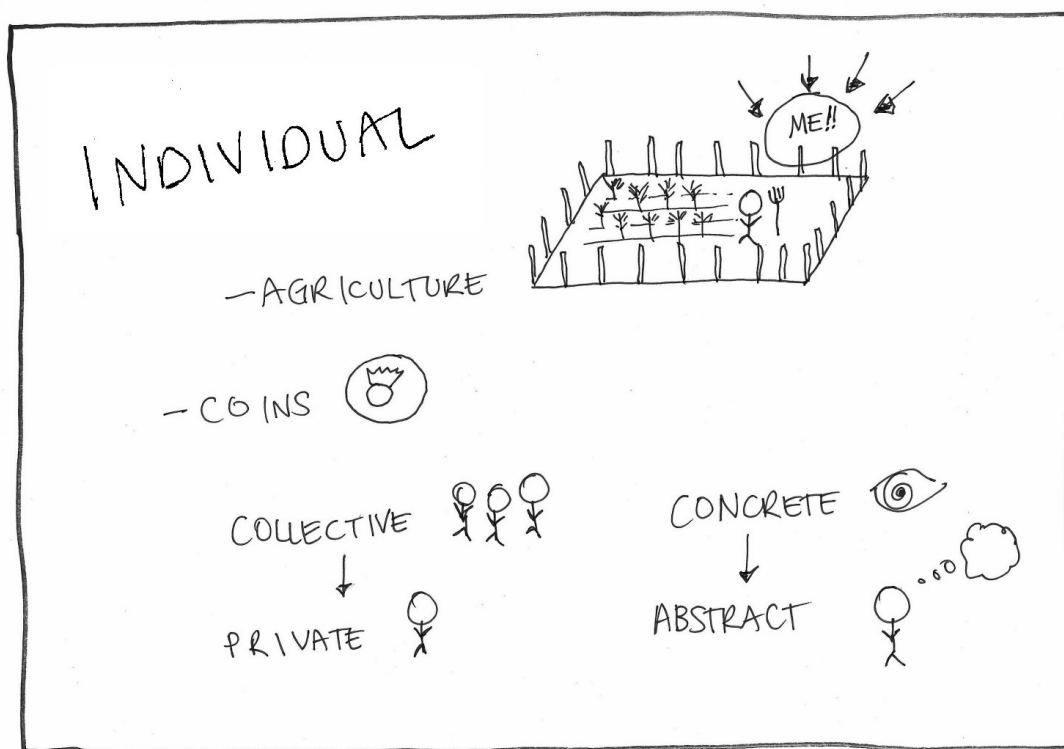 INDIVIDUAL
ME!!
- AGRICULTURE
- COINS
COLLECTIVE
PRIVATE
CONCRETE
ABSTRACT